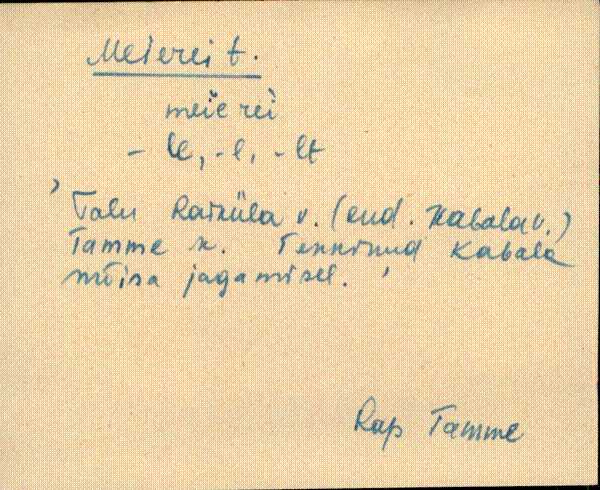 Meierei t.
meierei
- le, - l, - lt
' Talu Raiküla v. (end. Kabala v.)
Tamme k. Tekkinud Kabala
mõisa jagamisel. '
Rap Tamme